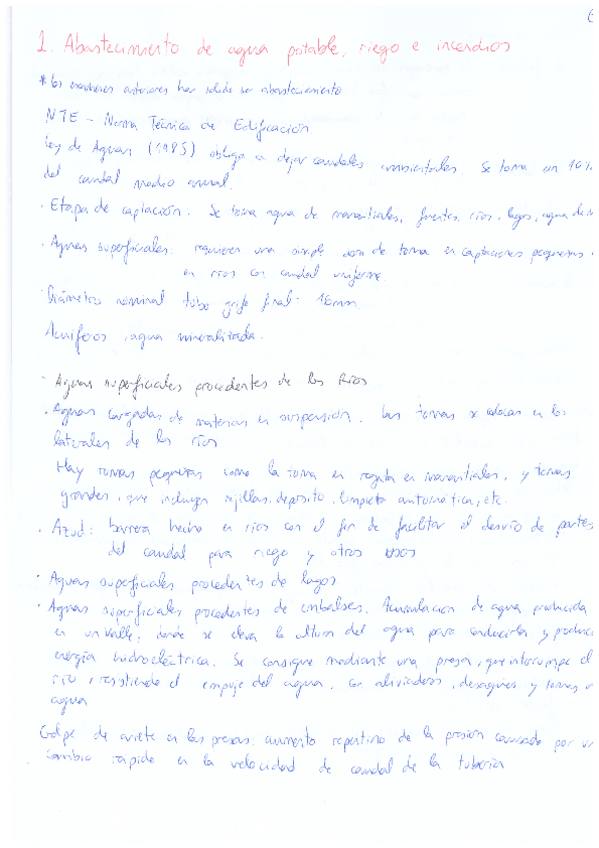 1. Abastecimiento de agua potable, riego e incendios
* Los exámenes anteriores han salido ser abastecimiento
NTE - Norma Técnica de Edificación
Ley de Aguas (1985) obliga a dejar caudales ambientales. Se toma un 10%
del caudal medio anual.
· Etapa de captación. Se toma agua de manantiales, fuentes, ríos, lagos, agua de
· Aguas superficiales: requieren una simple de toma en captaciones pequeñas
en ríos con caudal uniforme.
· Diámetro nominal tubo grifo final: 16mm.
Acuíferos, agua mineralizada.
- Aguas superficiales procedentes de los Ríos
· Aguas cargadas de materias en suspensión. Las tomas se colocan en los
laterales de los ríos
Hay tomas pequeñas como la toma en regata en manantiales, y tomas
grandes, que incluyen rejillas, depósito, limpieza automática, etc.
· Azud: barrera hecha en ríos con el fin de facilitar el desvío de partes
del caudal para riego y otros usos
· Aguas superficiales procedentes de lagos
· Aguas superficiales procedentes de embalses. Acumulación de agua producida
en un valle, donde se eleva la altura del agua para conducirla y
energía hidroeléctrica. Se consigue mediante una presa, que interrumpe el
río, resistiendo el empuje del agua. Con aliviaderos, desagües y tomas
agua
Golpe de ariete en las presas: aumento repentino de la presión causado por
cambio rápido en la velocidad de caudal de la tubería